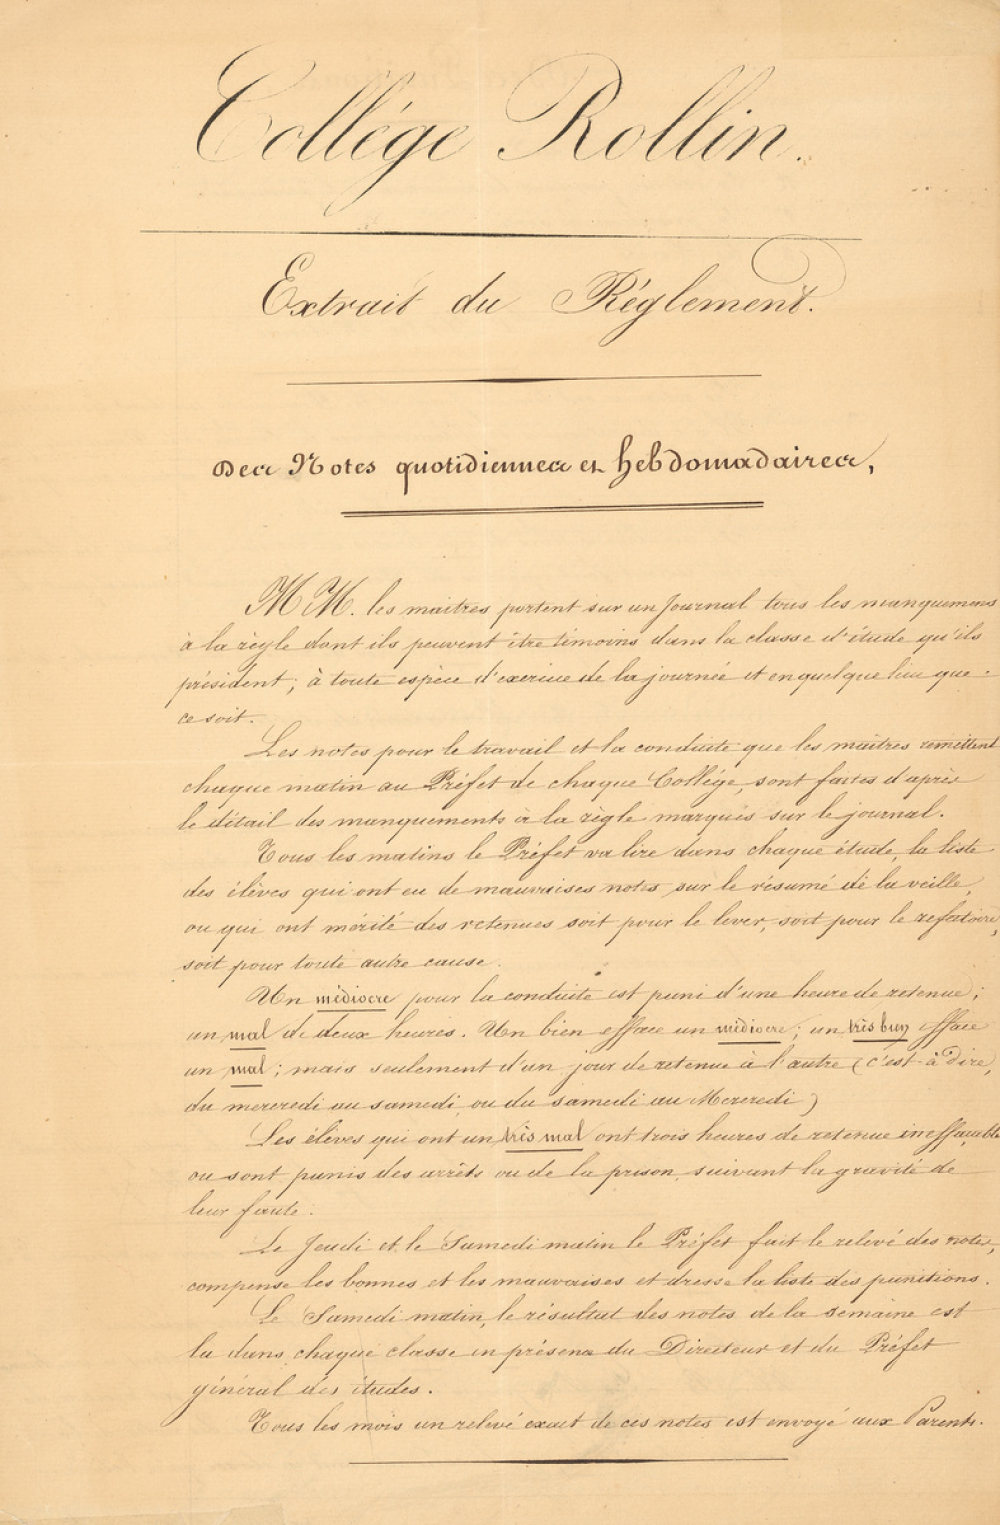 Collége Rollin.
Extrait du Réglement.
Des Notes quotidiennes et hebdomadaires,
MM. les maitres portent sur un Journal tous les manquemens
à la règle dont ils peuvent être témoins dans la classe d'étude qu'ils
président; à toute espèce d'exercice de la journée et en quelque lieu que
ce soit.
Les notes pour le travail et la conduite que les maitres remettent
chaque matin au Préfet de chaque Collége, sont faites d'après
le détail des manquements à la règle marqués sur le journal.
Tous les matins le Préfet va lire dans chaque étude, la liste
des élèves qui ont eu de mauvaises notes sur le résumé de la veille,
ou qui ont mérité des retenues soit pour le lever, soit pour le refectoire,
soit pour toute autre cause.
Un médiocre pour la conduite est puni d'une heure de retenue;
un mal de deux heures. Un bien efface un médiocre; un très bien efface
un mal; mais seulement d'un jour de retenue à l'autre (c'est-à-dire,
du mercredi au samedi, ou du samedi au Mercredi)
Les élèves qui ont un très mal ont trois heures de retenue ineffaçable
ou sont punis des arrêts ou de la prison, suivant la gravité de
leur faute.
Le Jeudi et le Samedi matin le Préfet fait le relevé des notes,
compense les bonnes et les mauvaises et dresse la liste des punitions.
Le Samedi matin, le résultat des notes de la semaine est
lu dans chaque classe en présence du Directeur et du Préfet
général des études.
Tous les mois un relevé exact de ces notes est envoyé aux Parents.